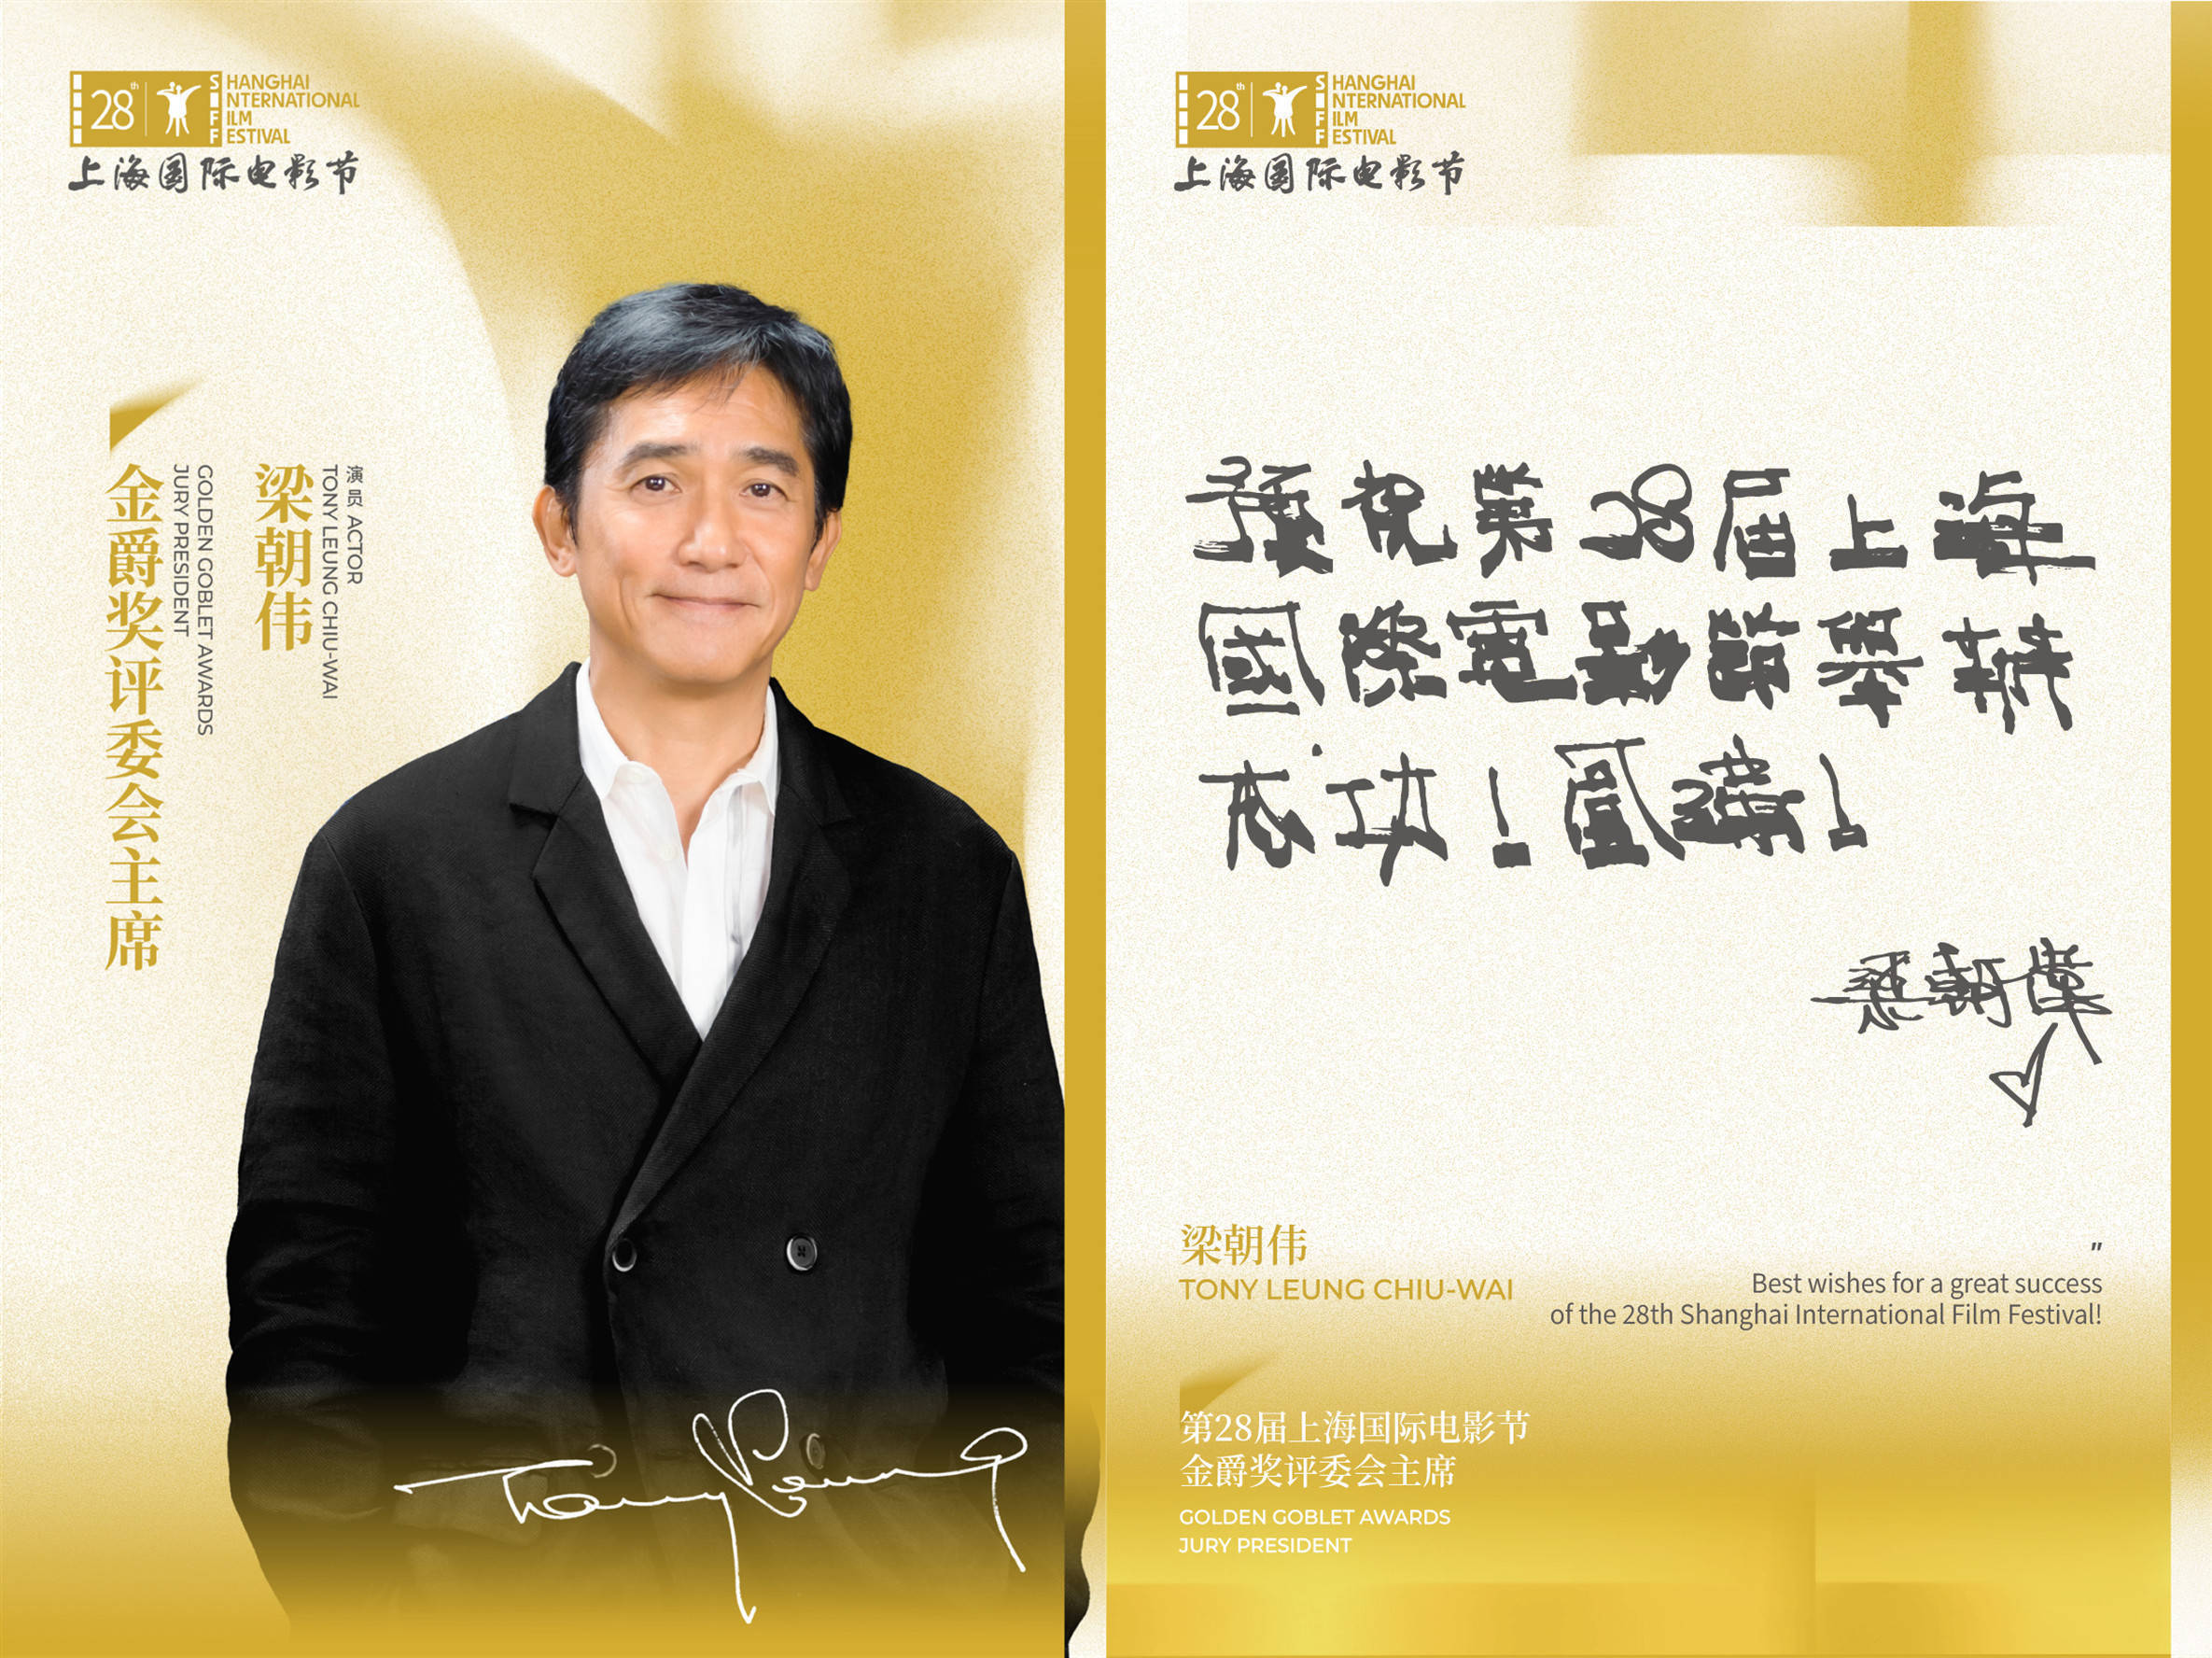 28th
SHANGHAI
INTERNATIONAL
FILM
FESTIVAL
上海国际电影节
演员 ACTOR
TONY LEUNG CHIU-WAI
梁朝伟
GOLDEN GOBLET AWARDS
JURY PRESIDENT
金爵奖评委会主席
Tony Leung
28th
SHANGHAI
INTERNATIONAL
FILM
FESTIVAL
上海国际电影节
預祝第28届上海
國際電影節舉辦
成功！感謝！
梁朝偉
梁朝伟
TONY LEUNG CHIU-WAI
"
Best wishes for a great success
of the 28th Shanghai International Film Festival!
第28届上海国际电影节
金爵奖评委会主席
GOLDEN GOBLET AWARDS
JURY PRESIDENT